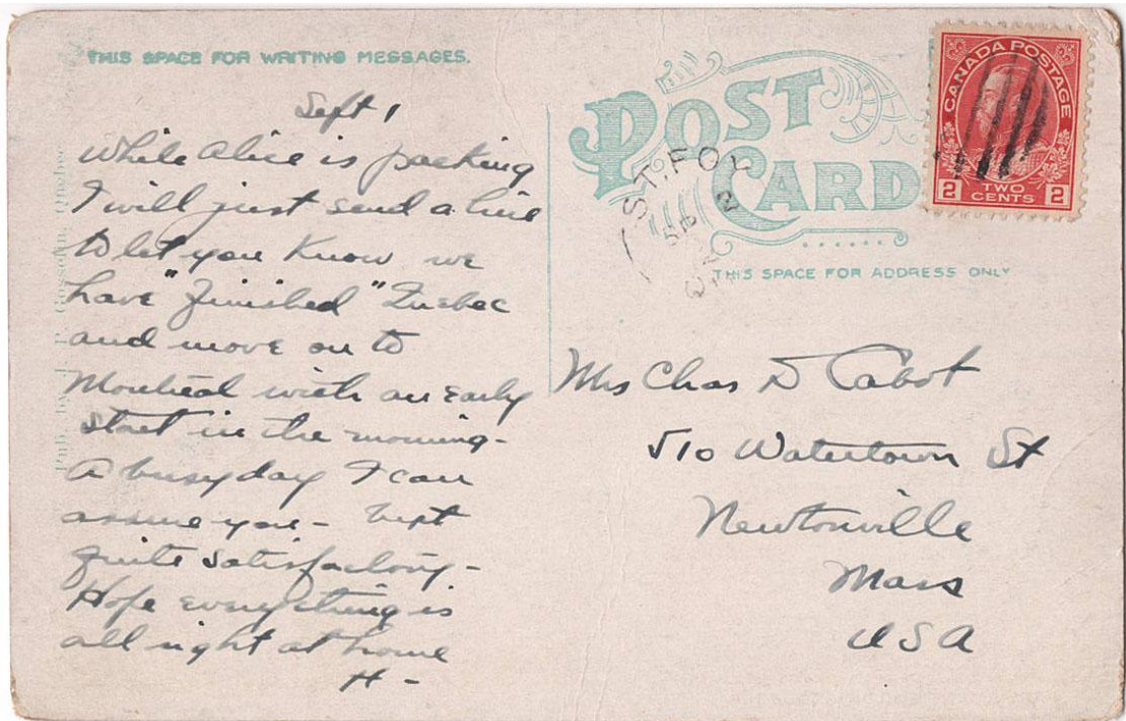 THIS SPACE FOR WRITING MESSAGES.
Sept 1
While Alice is packing
I will just send a line
to let you know we
have "finished" Quebec
and move on to
Montreal with an early
start in the morning -
A busy day I can
assure you - but
quite satisfactory -
Hope everything is
all right at home
H -
POST
CARD
CANADA POSTAGE
2 TWO CENTS 2
ST. FOY
SE 2
THIS SPACE FOR ADDRESS ONLY
Mrs Chas D Cabot
510 Watertown St
Newtonville
Mass
USA